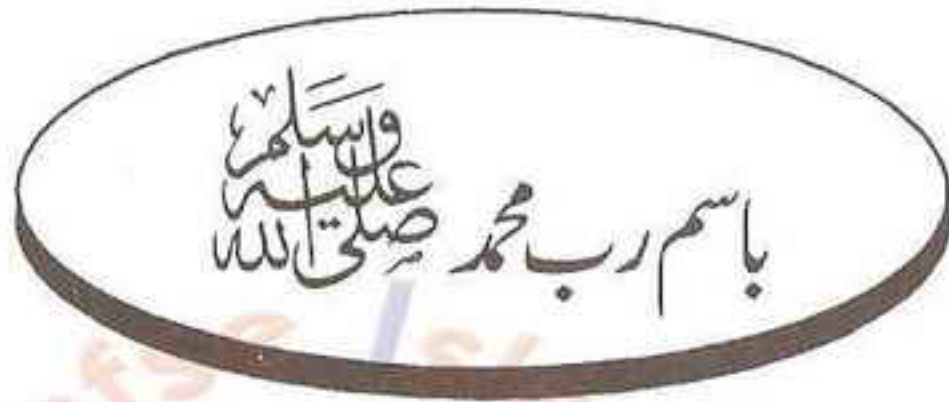 باسم رب محمد صلى الله عليه وسلم